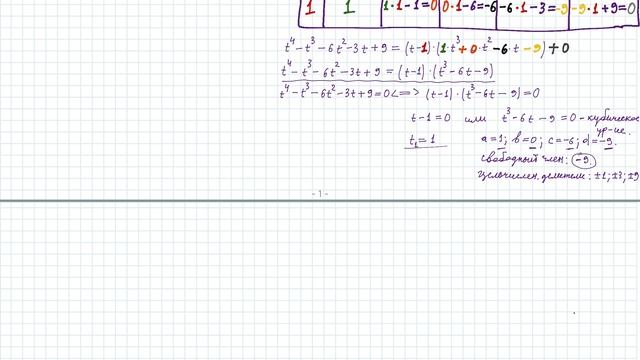 1 1 1·1-1=0 0·1-6=-6 -6·1-3=-9 -9·1+9=0
t⁴-t³-6t²-3t+9=(t-1)·(1·t³+0·t²-6·t-9)+0
t⁴-t³-6t²-3t+9=(t-1)·(t³-6t-9)
t⁴-t³-6t²-3t+9=0<=>(t-1)·(t³-6t-9)=0
t-1=0 или t³-6t-9=0-кубическое
ур-ие.
t₁=1 a=1; b=0; c=-6; d=-9.
свободный член: -9.
Целочислен. делители: ±1; ±3; ±9
- 1 -